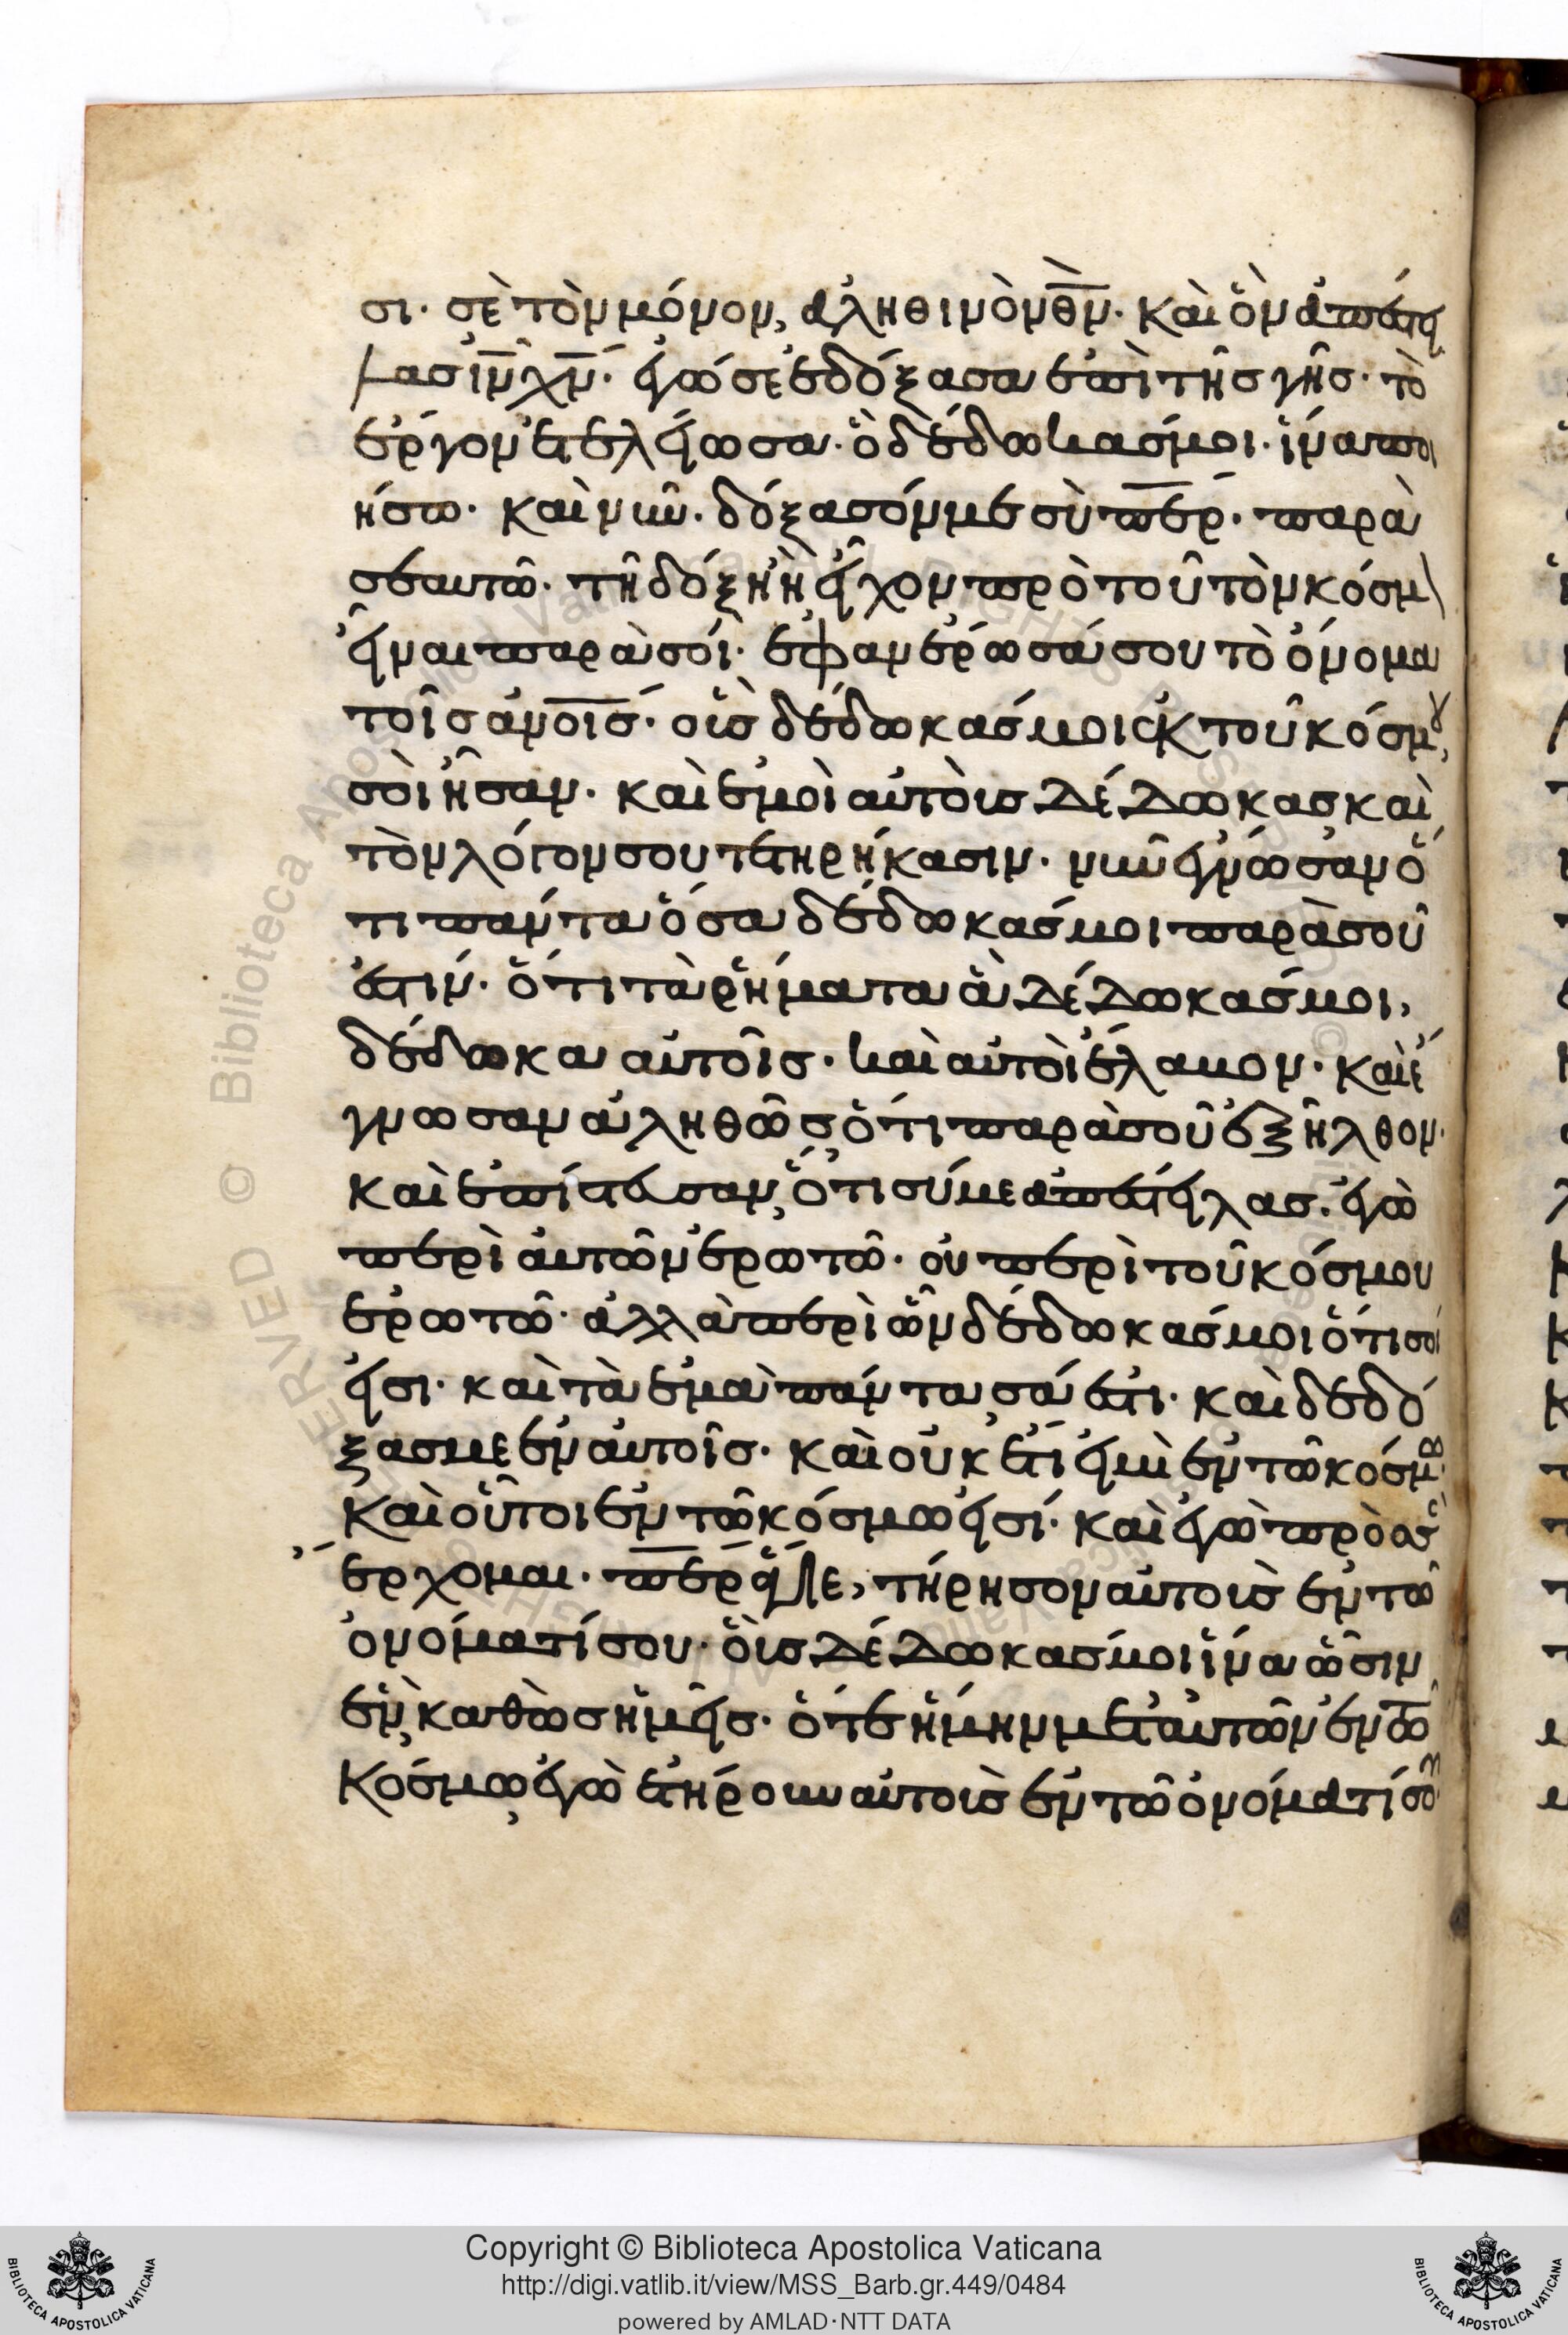 σι· σὲ τὸν μόνον, ἀληθινὸν θν· καὶ ὃν ἀπέστει
λασ ιν χν· ἐγώ σε ἐδόξασα ἐπὶ τῆσ γῆσ· τὸ
ἔργον ἐτελείωσα· ὃ δέδωκάσ μοι· ἵνα ποι
ήσω· καὶ νῦν· δόξασόν με σὺ περ· παρὰ
σεαυτῶ· τῆ δόξη ἧ εἶχον πρὸ τοῦ τὸν κόσμ\
εἶναι παρὰ σοί· ἐφανέρωσά σου τὸ ὄνομα
τοῖσ ἀνοισ· οὓσ δέδωκάσ μοι ἐκ τοῦ κόσμου,
σοὶ ἦσαν· καὶ ἐμοὶ αὐτοὺσ δέδωκασ καὶ
τὸν λόγον σου τετηρήκασιν· νῦν ἔγνωσαν ὅ
τι πάντα ὅσα δέδωκάσ μοι παρὰ σοῦ
ἐστιν· ὅτι τὰ ῥήματα ἃ δέδωκάσ μοι,
δέδωκα αὐτοῖσ· καὶ αὐτοὶ ἔλαβον· καὶ ἔ
γνωσαν ἀληθῶσ ὅτι παρὰ σοῦ ἐξῆλθον·
καὶ ἐπίστευσαν, ὅτι σύ με ἀπέστειλασ. ἐγὼ
περὶ αὐτῶν ἐρωτῶ· οὐ περὶ τοῦ κόσμου
ἐρωτῶ· ἀλλὰ περὶ ὧν δέδωκάσ μοι ὅτι σοί
εἰσι· καὶ τὰ ἐμὰ πάντα σά ἐστι· καὶ δεδό
ξασμε ἐν αὐτοῖσ· καὶ οὐκ ἔτι εἰμὶ ἐν τῶ κόσμω·
καὶ οὗτοι ἐν τῶ κόσμω εἰσί· καὶ ἐγὼ πρὸσ σὲ
ἔρχομαι· περ ἅγιε, τήρησον αὐτοὺσ ἐν τῶ
ὀνόματί σου· οὓσ δέδωκάσ μοι ἵνα ὦσιν
ἓν, καθὼσ ἡμεῖσ· ὅτε ἤμην μετ αὐτῶν ἐν τῶ
κόσμω, ἐγὼ ἐτήρουν αὐτοὺσ ἐν τῶ ὀνόματί σου·
Copyright © Biblioteca Apostolica Vaticana
http://digi.vatlib.it/view/MSS_Barb.gr.449/0484
powered by AMLAD·NTT DATA
BIBLIOTECA APOSTOLICA VATICANA
BIBLIOTECA APOSTOLICA VATICANA